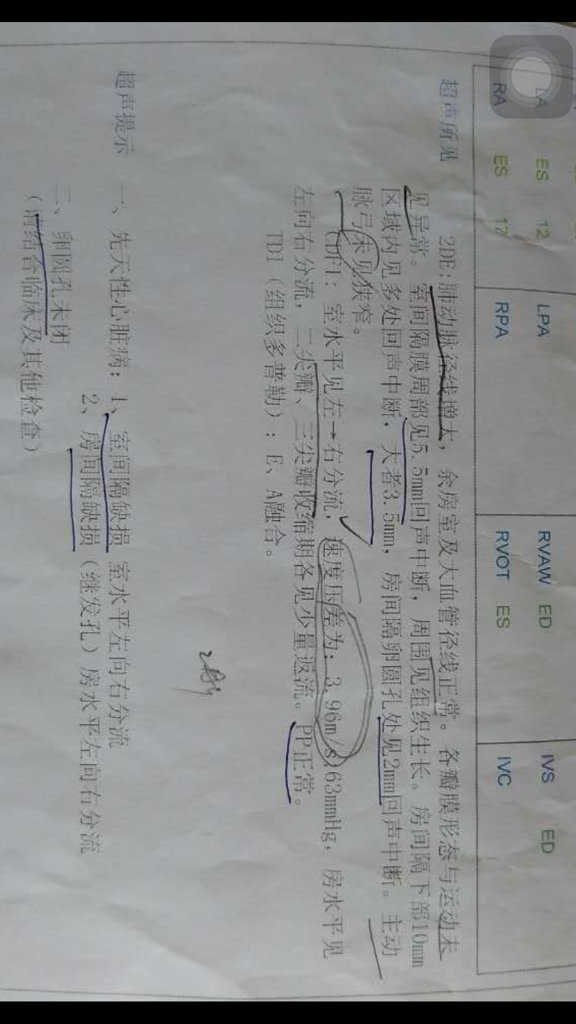 LA ES 12 LPA RVAW ED IVS ED
RA ES 17 RPA RVOT ES IVC
超声所见 2DE:肺动脉径线增大，余房室及大血管径线正常。各瓣膜形态与运动未
见异常。室间隔膜周部见5.5mm回声中断，周围见组织生长。房间隔下部10mm
区域内见多处回声中断，大者3.5mm，房间隔卵圆孔处见2mm回声中断。主动
脉弓未见狭窄。
CDFI：室水平见左→右分流，速度压差为：3.96m/s,63mmHg，房水平见
左向右分流，二尖瓣、三尖瓣收缩期各见少量返流。PP正常。
TDI（组织多普勒）：E、A融合。
超声提示 一、先天性心脏病：1、室间隔缺损 室水平左向右分流
2、房间隔缺损（继发孔）房水平左向右分流
二、卵圆孔未闭
（请结合临床及其他检查）